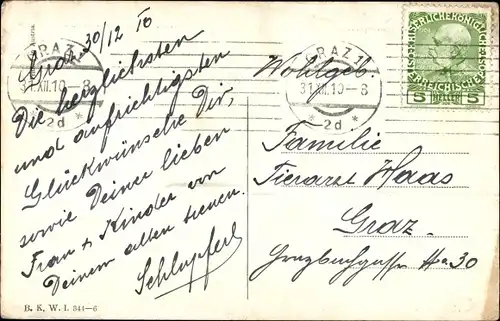 Graz 30/12 10
Die herzlichsten
und aufrichtigsten
Glückwünsche Dir,
sowie Deiner lieben
Frau + Kinder von
Deinem alten treuen
Schlupferl
B. K. W. I. 344–6
GRAZ 1
31.XII.10–8
* 2d *
GRAZ 1
31.XII.10–8
* 2d *
5 HELLER 5
Wohlgeb.
Familie
Tierarzt Haas
Graz
30